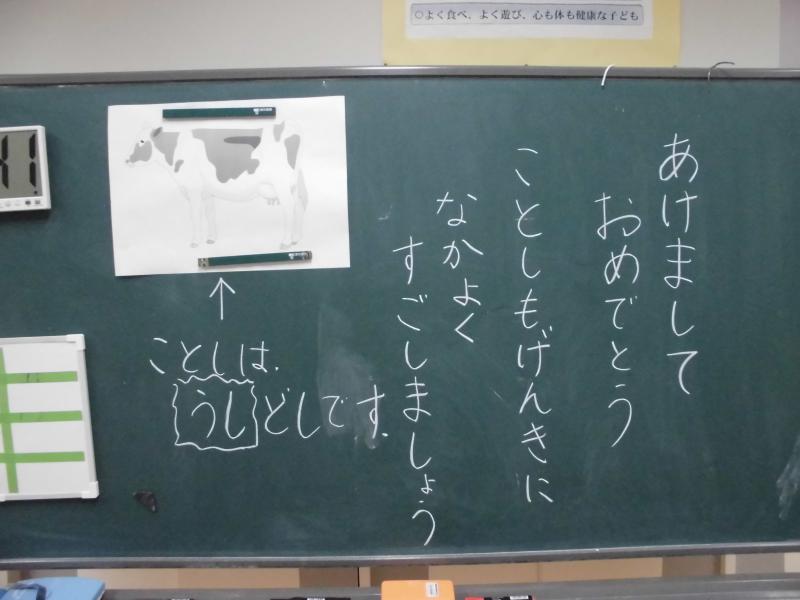 ○よく食べ、よく遊び、心も体も健康な子ども
あけまして
おめでとう
ことしもげんきに
なかよく
すごしましょう
ことしは、
うしどしです。